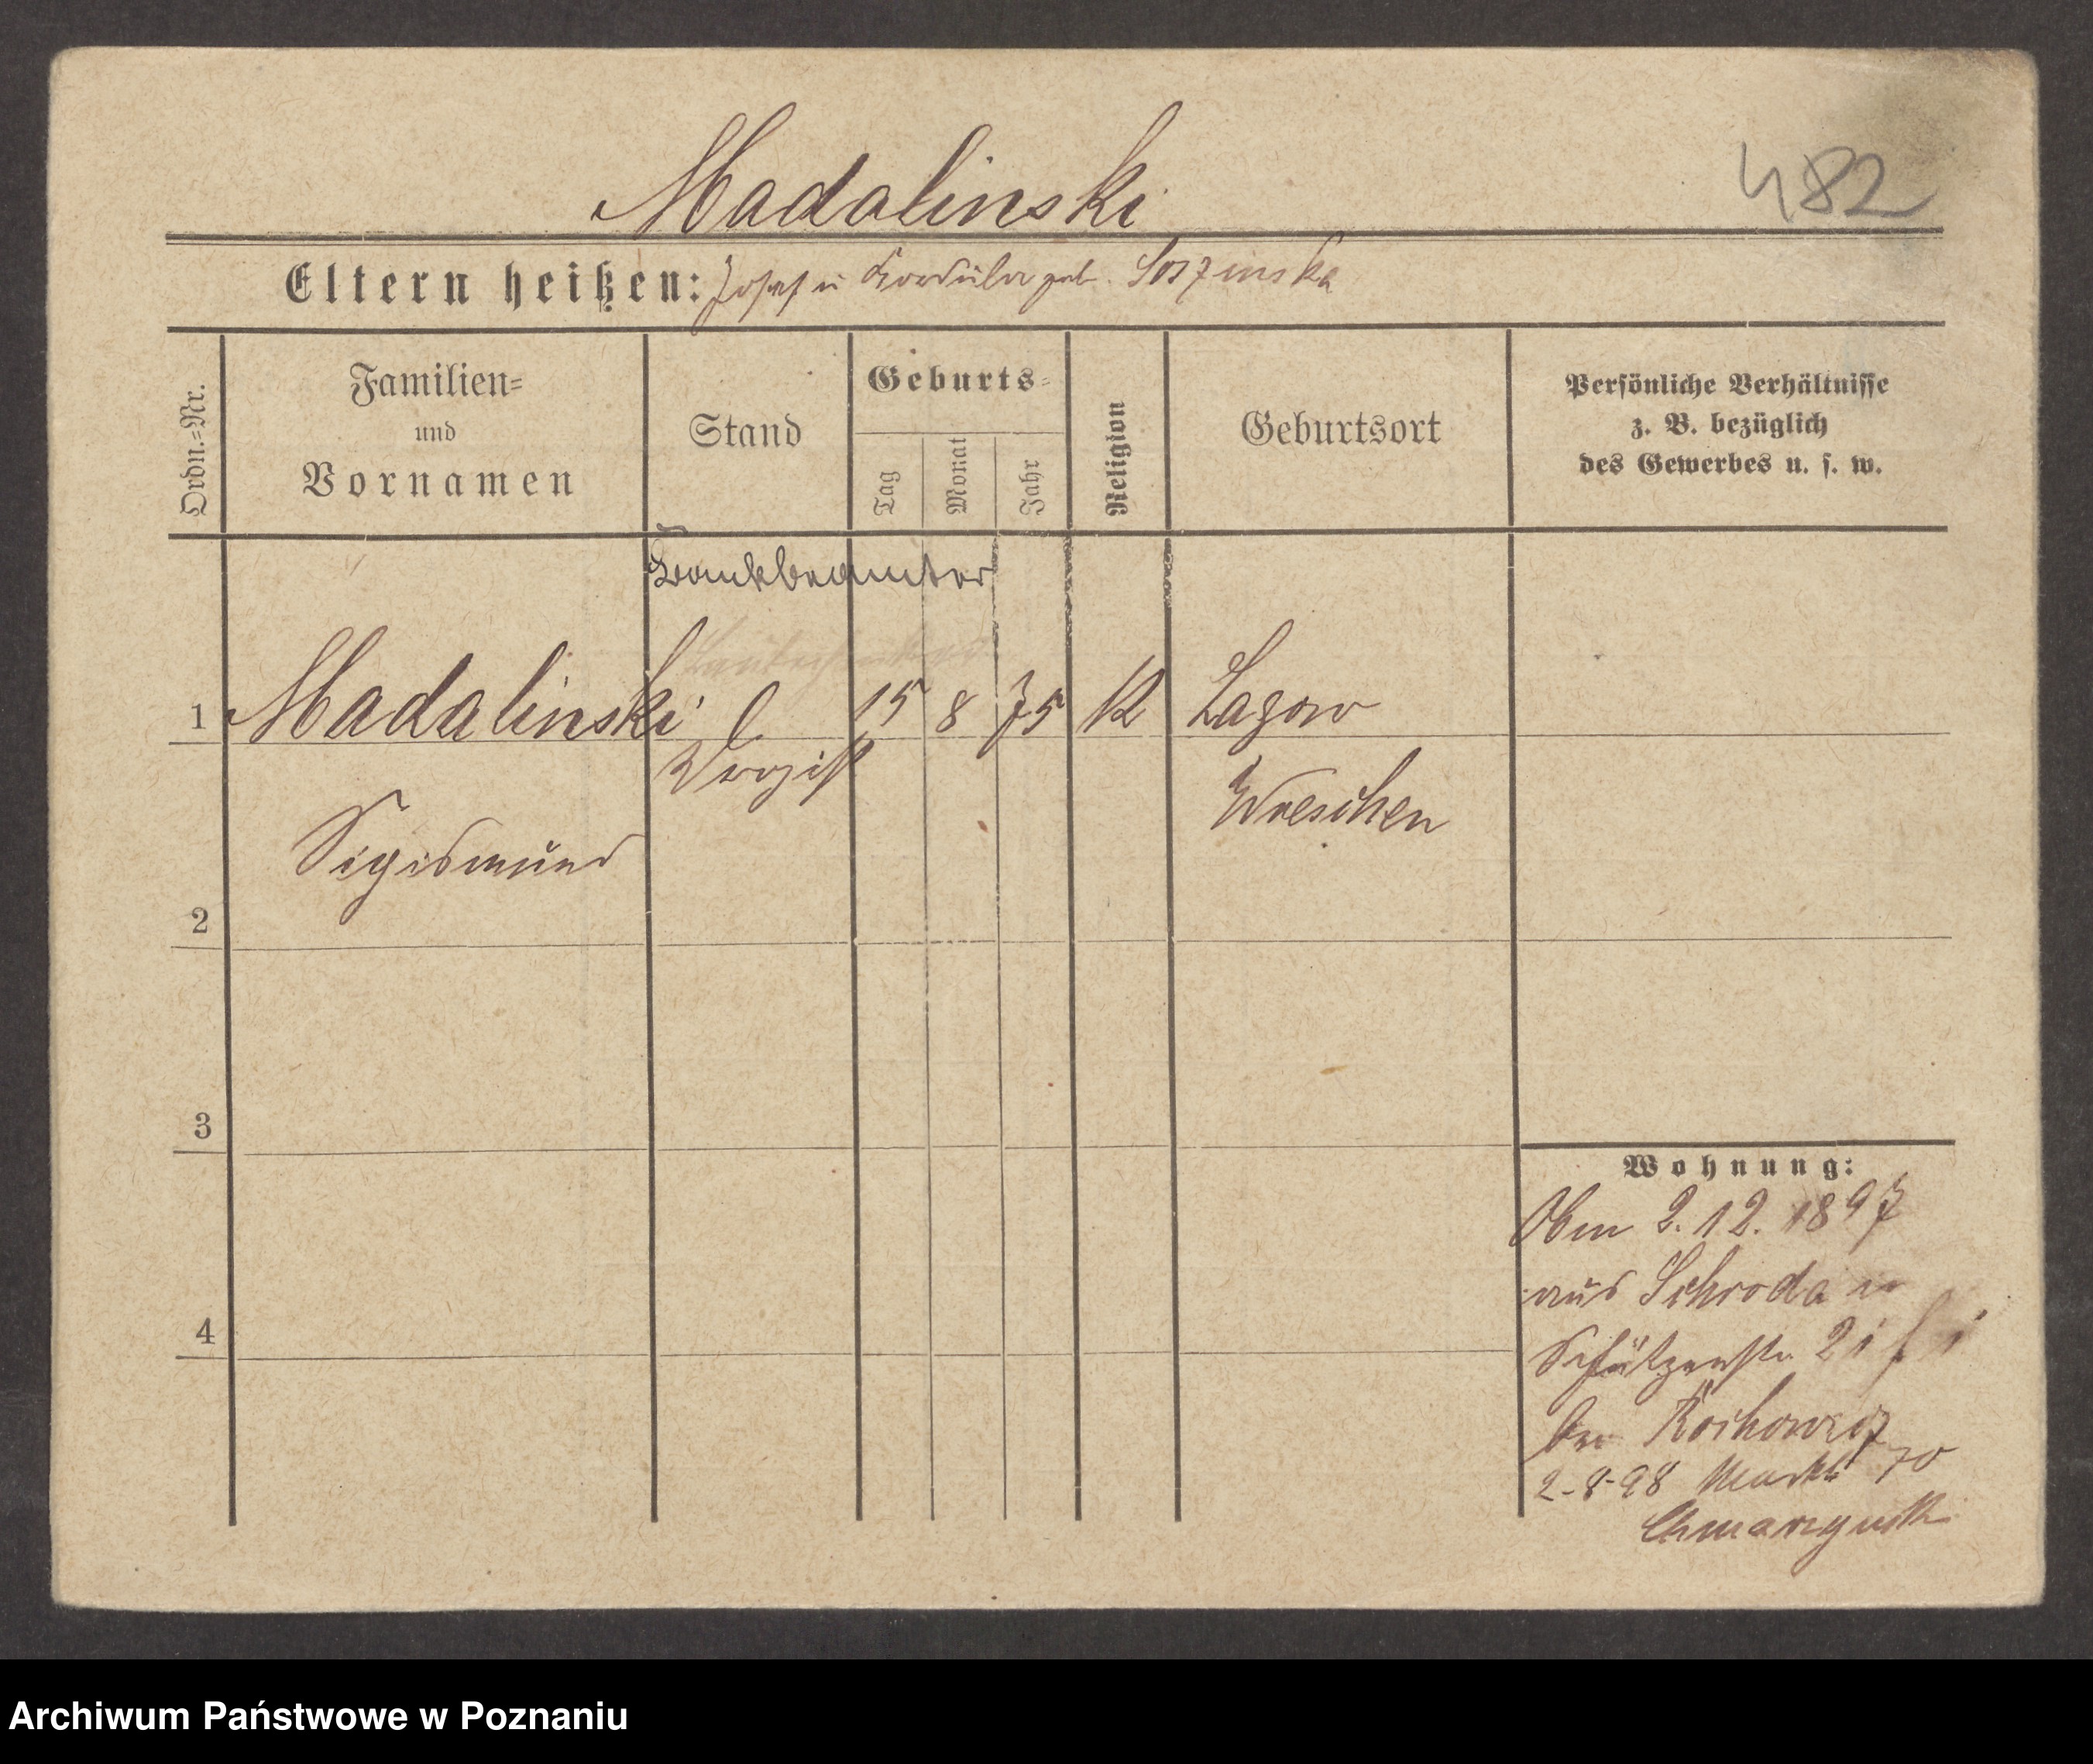 Madalinski
482
Eltern heißen: Josef u Kordula geb. Soszinska
Ordn.=Nr.
Familien=
und
Vornamen
Stand
Geburts=
Tag
Monat
Jahr
Religion
Geburtsort
Persönliche Verhältnisse
z. B. bezüglich
des Gewerbes u. s. w.
Bankbeamter
1 Madalinski l 15 8 75 K Lagow
Drogist
Wreschen
Sigismund
2
3
4
Wohnung:
2.12.1897
aus Schroda in
Schützenstr 21
bei
2-8-98 Markt 70
Archiwum Państwowe w Poznaniu